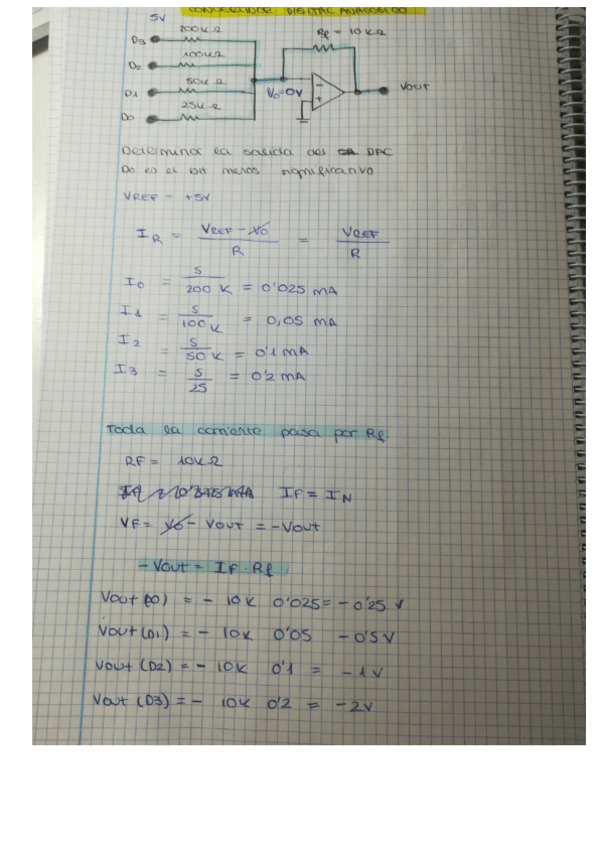 CONVERTIDOR DIGITAL ANALOGICO
5V
200KΩ
Rf = 10KΩ
D3
100KΩ
D2
50KΩ
D1
Vo=0V
Vout
25KΩ
D0
Determinar la salida del DAC
D0 es el bit menos significativo
VREF = +5V
IR = VREF-Vo / R = VREF / R
I0 = 5 / 200 K = 0'025 mA
I1 = 5 / 100K = 0,05 mA
I2 = 5 / 50 K = 0'1 mA
I3 = 5 / 25 = 0'2 mA
Toda la corriente pasa por Rf
RF = 10KΩ
IF = IN
VF = Vo - Vout = -Vout
- Vout = IF · Rf
Vout (D0) = - 10K 0'025 = -0'25 V
Vout (D1) = - 10K 0'05 -0'5 V
Vout (D2) = - 10K 0'1 = -1V
Vout (D3) = - 10K 0'2 = -2V